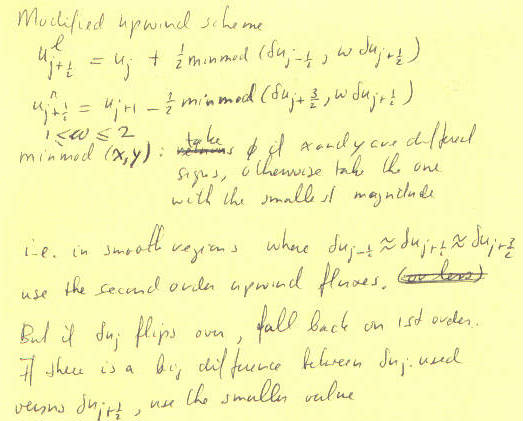 Modified upwind scheme
u^l_{j+1/2} = u_j + 1/2 minmod (δu_{j-1/2}, w δu_{j+1/2})
u^r_{j+1/2} = u_{j+1} - 1/2 minmod (δu_{j+3/2}, w δu_{j+1/2})
1 < w ≤ 2
minmod (x,y) : take ϕ if x and y are different
signs, otherwise take the one
with the smallest magnitude
i.e. in smooth regions where δu_{j-1/2} ≈ δu_{j+1/2} ≈ δu_{j+3/2}
use the second order upwind fluxes. (or less)
But if δu_j flips over, fall back on 1st order.
If there is a big difference between δu_j. used
versus δu_{j+1/2}, use the smaller value